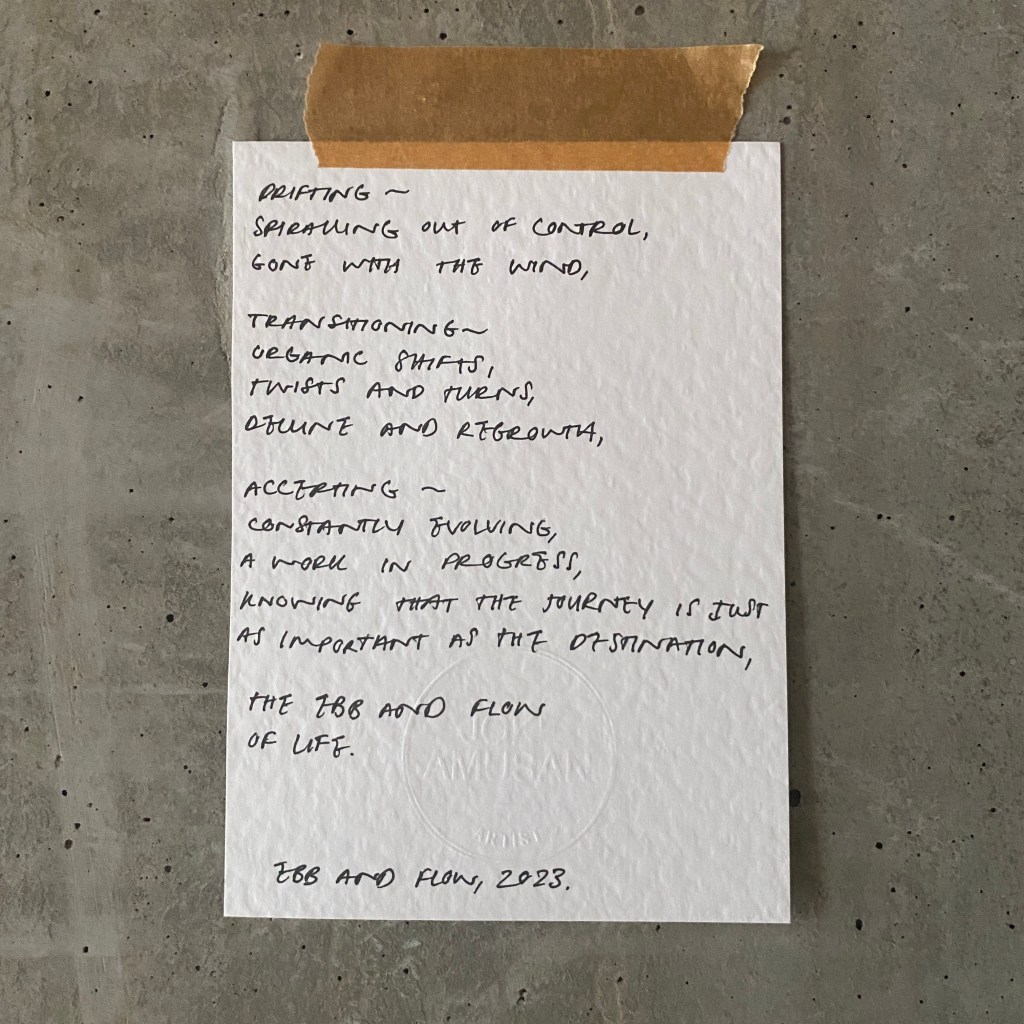 DRIFTING ~
SPIRALLING OUT OF CONTROL,
GONE WITH THE WIND,
TRANSITIONING ~
ORGANIC SHIFTS,
TWISTS AND TURNS,
DECLINE AND REGROWTH,
ACCEPTING ~
CONSTANTLY EVOLVING,
A WORK IN PROGRESS,
KNOWING THAT THE JOURNEY IS JUST
AS IMPORTANT AS THE DESTINATION,
THE EBB AND FLOW
OF LIFE.
AMUSAN
ARTIST
EBB AND FLOW, 2023.